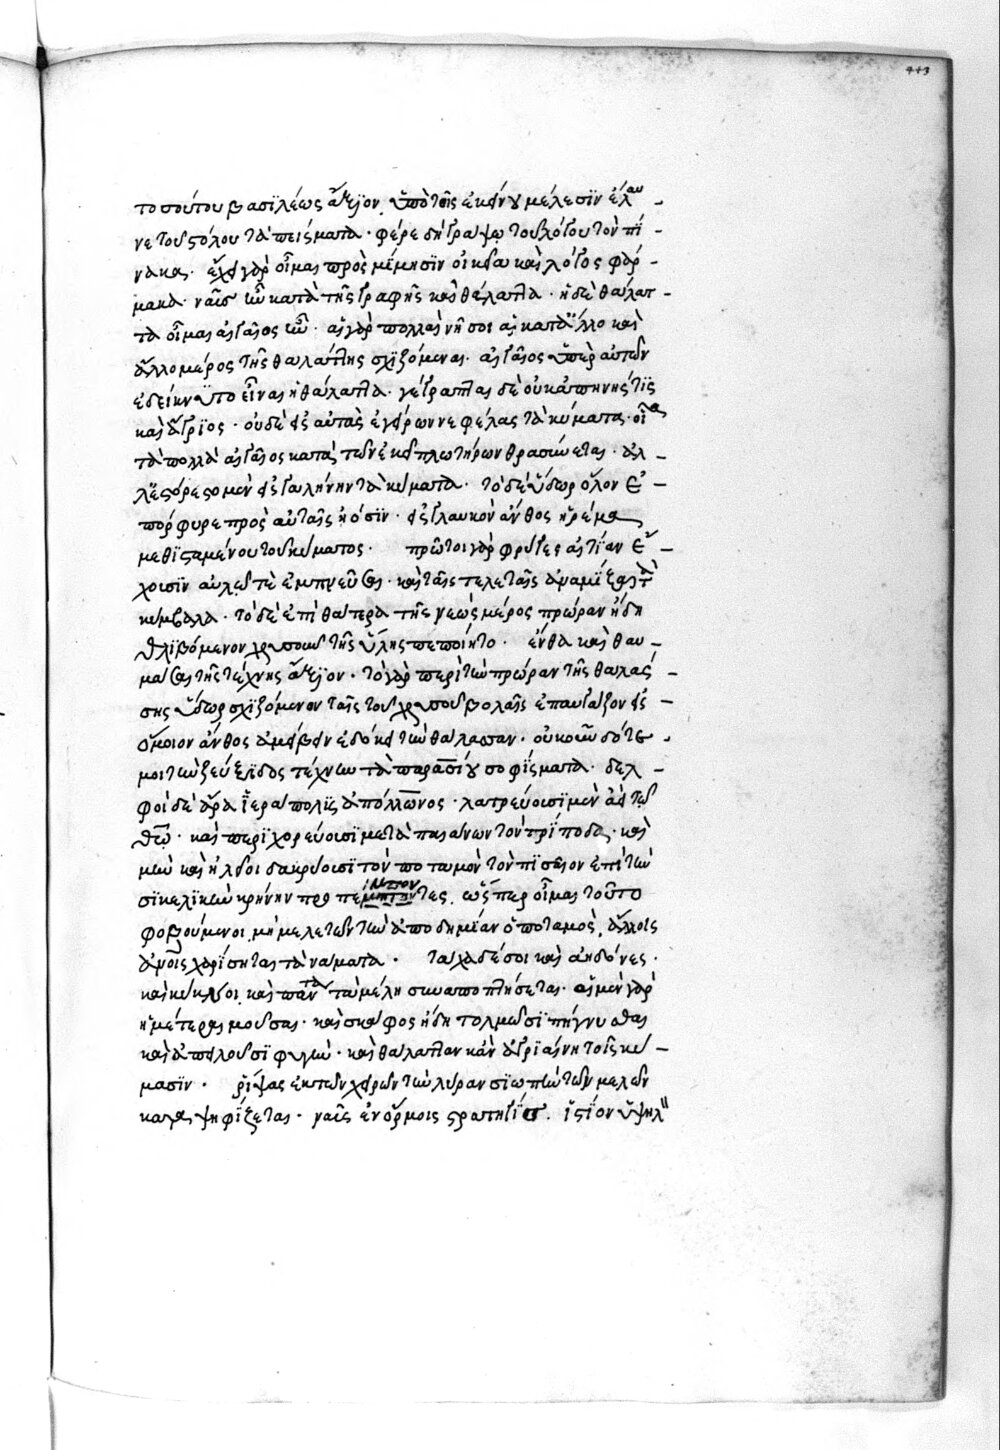 443
τοσούτου βασϊλέως ἄξιον. ὑπὸ τοῖς ἐκείνου μέλεσϊν ἔλαυ
νε τοῦ στόλου τὰ πείσματα. φέρε δὴ γράψω τοῦ λόγου τὸν πί
νακα. ἔχει γὰρ οἶμαι πρὸς μίμησϊν οἰκεῖα καὶ λόγος φάρ
μακα. ναῦς ἦν κατὰ τῆς γραφῆς καὶ θάλαττα. ἡ δὲ θάλατ
τα οἶμαι αἰγαῖος ἦν. αἱ γὰρ πολλαὶ νῆσοι αἱ κατ' ἄλλο καὶ
ἄλλο μέρος τῆς θαλάττης σχϊζόμεναι. αἰγαῖος ὑπὲρ αὐτῶν
ἐδείκνυτο εἶναι ἡ θάλαττα. γέγραπται δὲ οὐκ ἀπηνής τϊς
καὶ ἄγρϊος. οὐδὲ εἰς αὐτὰς ἐγείρων νεφέλας τὰ κύματα. οἷα
τὰ πολλὰ αἰγαῖος κατὰ τῶν ἐκεῖ πλωτήρων θρασύνεται. ἀλ
λ' ἐστόρεστο μὲν εἰς γαλήνην τὰ κύματα. τὸ δὲ ὕδωρ ὅλον ἐ
πόρφυρε πρὸς αὐταῖς ἠϊόσϊν. εἰς γλαυκὸν ἄνθος ἠρέμα
μεθϊσταμένου τοῦ κύματος. πρῶτοι γὰρ φρύγες αἰτίαν ἔ
χουσϊν αὐλῷ τε ἐμπνεῦσαι. καὶ ταῖς τελεταῖς ἀναμῖξαι τὰ
κύμβαλα. τὸ δὲ ἐπὶ θάτερα τῆς νεὼς μέρος πρώραν ἤδη
θλϊβόμενον χρυσοῦ τῆς ὕλης πεποίητο. ἔνθα καὶ θαυ
μάσαι τῆς τέχνης ἄξιον. τὸ γὰρ περὶ τὴν πρώραν τῆς θαλάσ
σης ὕδωρ σχϊζόμενον ταῖς τοῦ χρυσοῦ βολαῖς ἐπαυγάζον εἰς
ὅμοιον ἄνθος ἀμείβειν ἐδόκει τὴν θάλασσαν. οὐκοῦν δότε
μοι τὴν ζεύξϊδος τέχνην τὰ παρασίου σοφίσματα. δελ
φοὶ δὲ ἄρα ἱερὰ πόλϊς ἀπόλλωνος. λατρεύουσϊ μὲν ἀεὶ τῷ
θεῷ. καὶ περϊχορεύουσϊ μετὰ παιάνων τὸν τρίποδα. καὶ
μὴν καὶ ἠλεῖοι δακρύουσϊ τὸν ποταμὸν τὸν πϊσαῖον ἐπὶ τὴν
σϊκελϊκὴν κρήνην προπέμποντες. ὥσπερ οἶμαι τοῦτο
φοβούμενοι. μὴ μελετῶν τὴν ἀποδημίαν ὁ ποταμὸς, ἄλλοις
ἀνθρώποις χαρίσηται τὰ νάματα. τάχα δέ σοι καὶ ἀηδόνες.
καὶ κύκνοι. καὶ πάντα τὰ μέλη συναποπτήσεται. αἱ μὲν γὰρ
ἡμέτεραι μοῦσαι. καὶ σκάφος ἤδη τολμῶσϊ πήγνυσθαι
καὶ ἀπειλοῦσϊ φυγὴν. καὶ θάλατταν κἂν ἀγρϊαίνῃ τοῖς κύ
μασϊν. ῥίψας ἐκ τῶν χειρῶν τὴν λύραν σϊωπὴν τῶν μελῶν
καταψηφίζεται. ναῦς ἐν ὅρμοις στρατηγίς. ἱστίον ὑψηλ